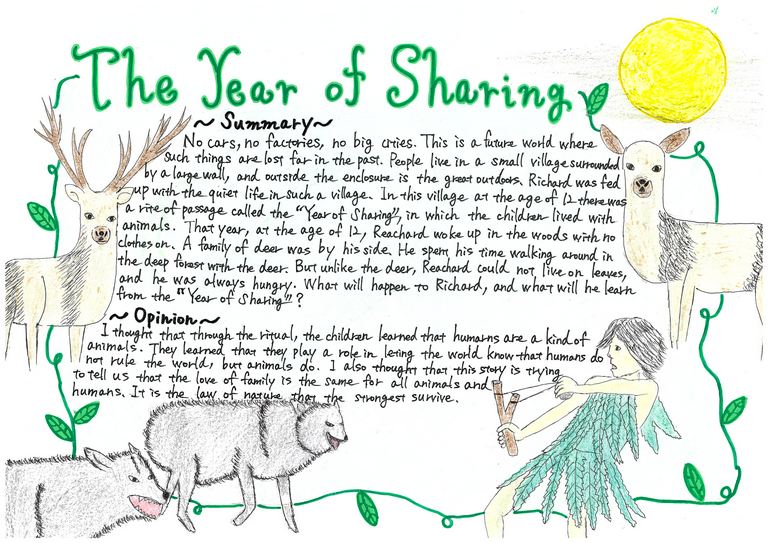 The Year of Sharing
~ Summary ~
No cars, no factories, no big cities. This is a future world where
such things are lost far in the past. People live in a small village surrounded
by a large wall, and outside the enclosure is the great outdoors. Richard was fed
up with the quiet life in such a village. In this village at the age of 12 there was
a rite of passage called the "Year of Sharing", in which the children lived with
animals. That year, at the age of 12, Reachard woke up in the woods with no
clothes on. A family of deer was by his side. He spent his time walking around in
the deep forest with the deer. But unlike the deer, Reachard could not live on leaves,
and he was always hungry. What will happen to Richard, and what will he learn
from the "Year of Sharing"?
~ Opinion ~
I thought that through the ritual, the children learned that humans are a kind of
animals. They learned that they play a role in leting the world know that humans do
not rule the world, but animals do. I also thought that this story is trying
to tell us that the love of family is the same for all animals and
humans. It is the law of nature that the strongest survive.